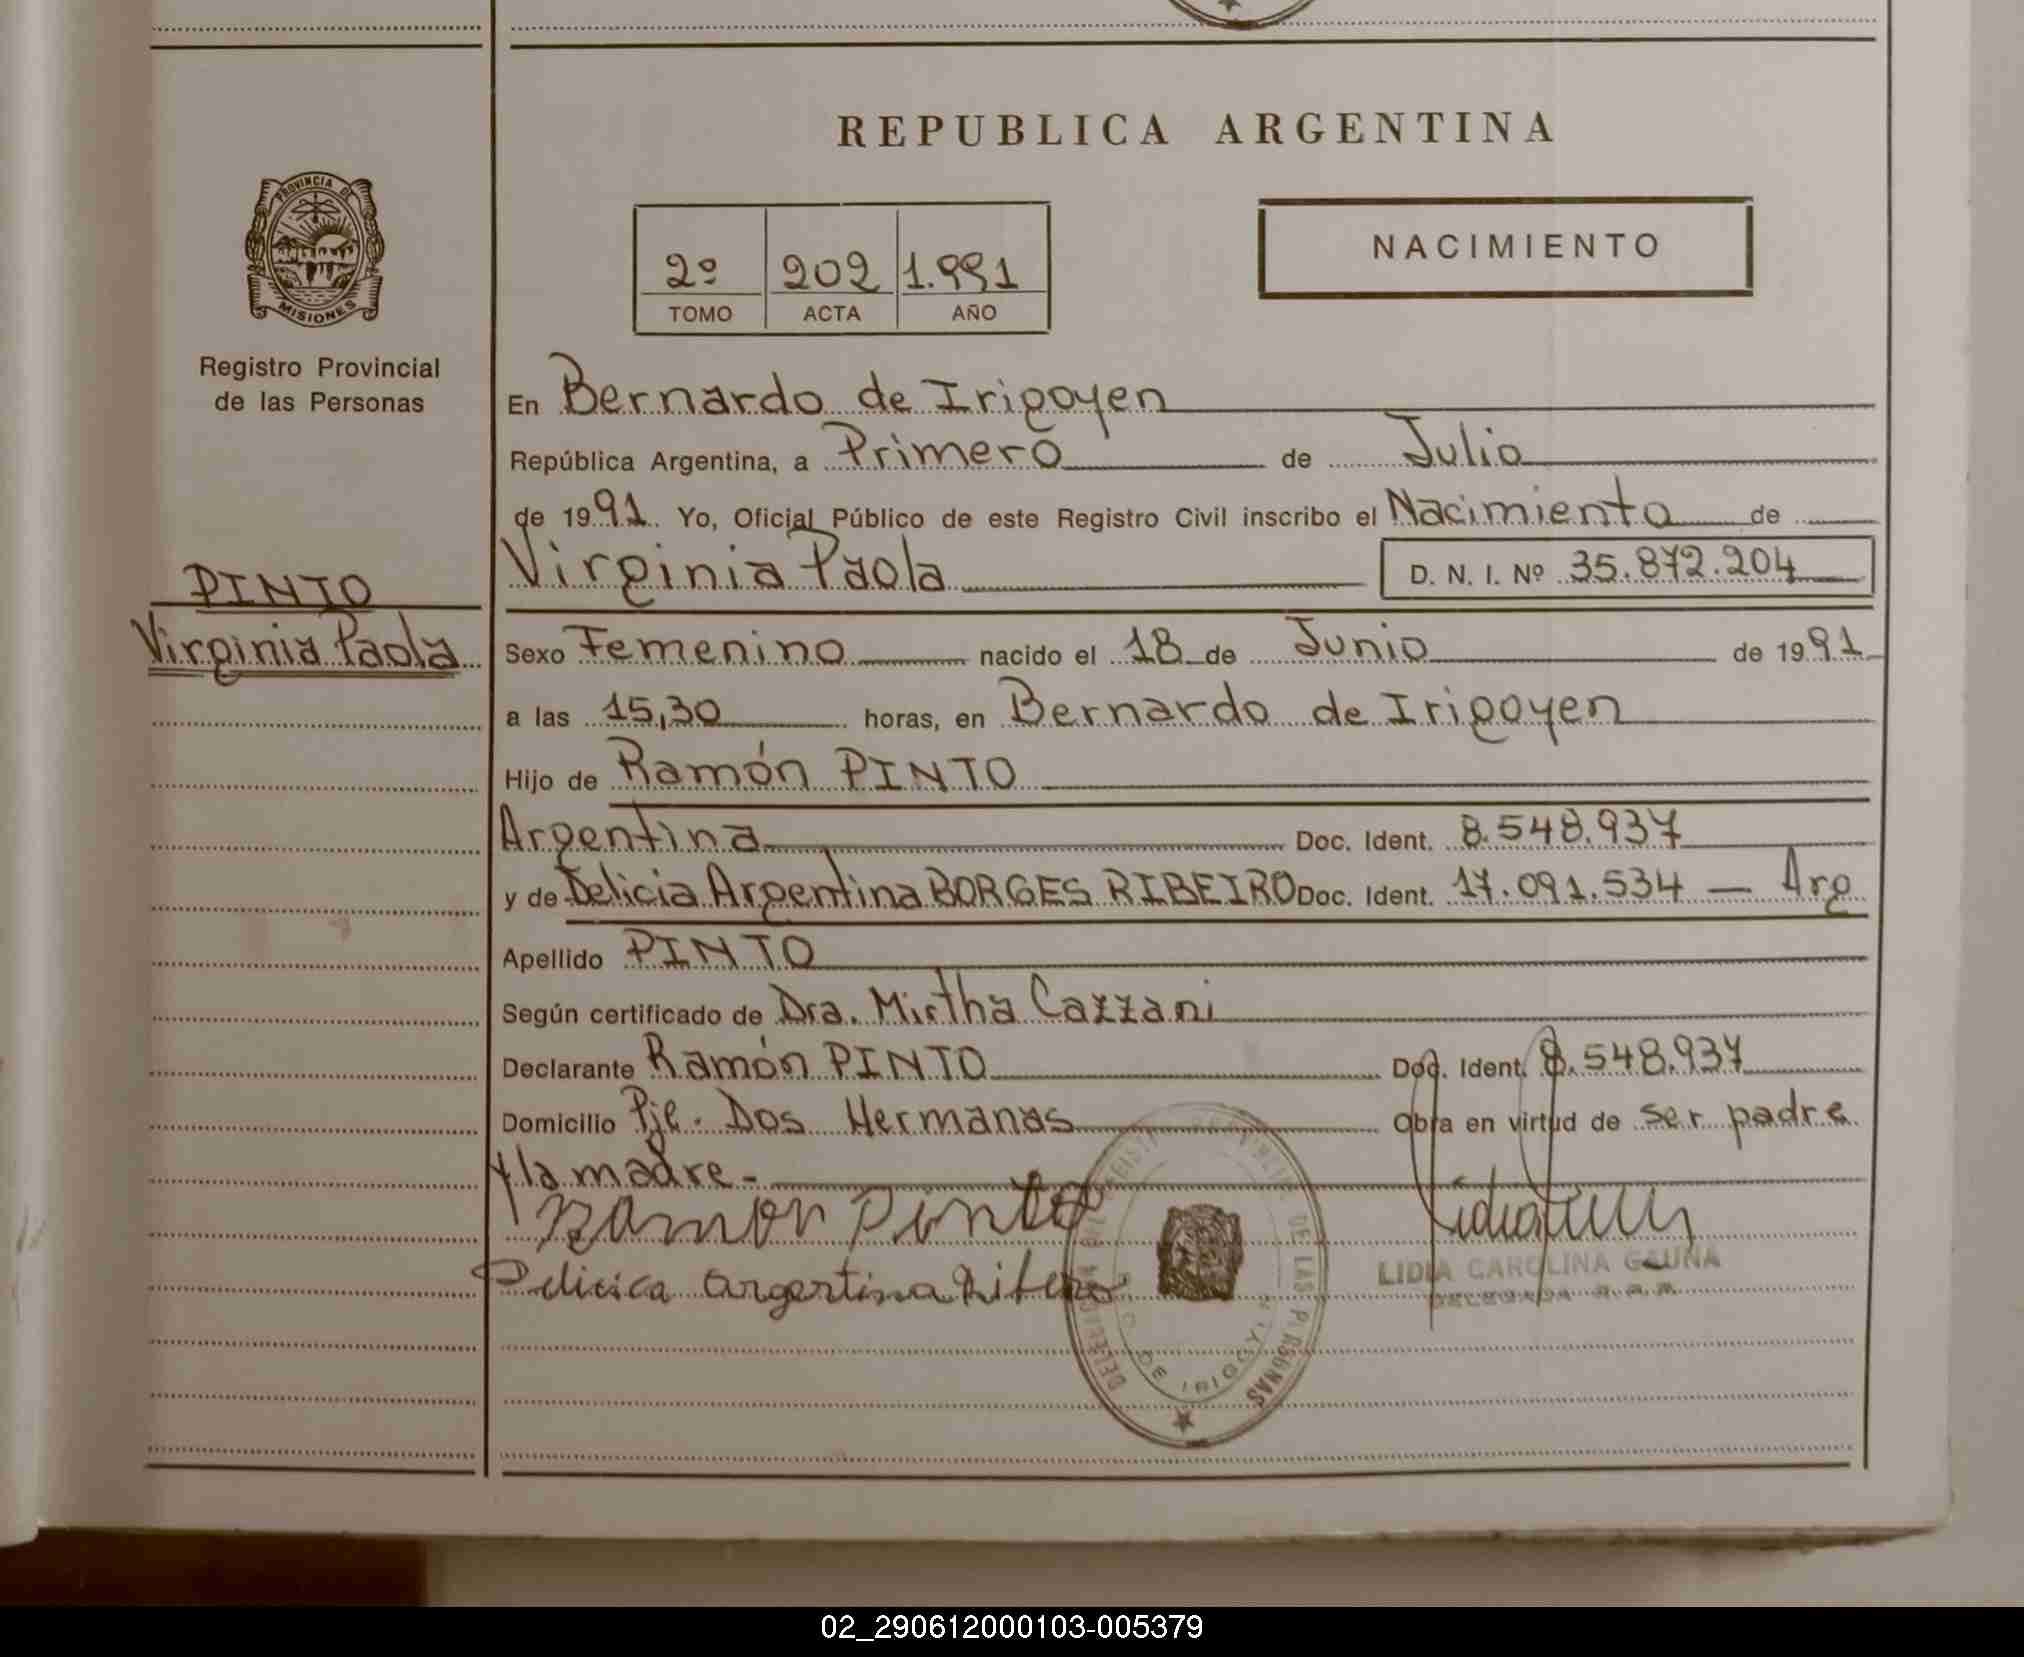 REPUBLICA ARGENTINA
PROVINCIA DE
MISIONES
Registro Provincial
de las Personas
2º 202 1.991
TOMO ACTA AÑO
NACIMIENTO
En Bernardo de Irigoyen
República Argentina, a Primero de Julio
de 1991. Yo, Oficial Público de este Registro Civil inscribo el Nacimiento de
Virginia Paola D. N. I. Nº 35.872.204
PINTO
Virginia Paola
Sexo Femenino nacido el 18 de Junio de 1991
a las 15,30 horas, en Bernardo de Irigoyen
Hijo de Ramón PINTO
Argentina Doc. Ident. 8.548.937
y de Delicia Argentina BORGES RIBEIRO Doc. Ident. 17.091.534 — Arg
Apellido PINTO
Según certificado de Dra. Mirtha Cazzani
Declarante Ramón PINTO Doc. Ident. 8.548.937
Domicilio Pje. Dos Hermanas Obra en virtud de ser padre
y la madre.-
Ramon Pinto
Argentina
LIDIA CAROLINA GAUNA
DELEGADA R.P.P.
DELEGACION DEL REGISTRO PROVINCIAL DE LAS PERSONAS
BDO DE IRIGOYEN
02_290612000103-005379